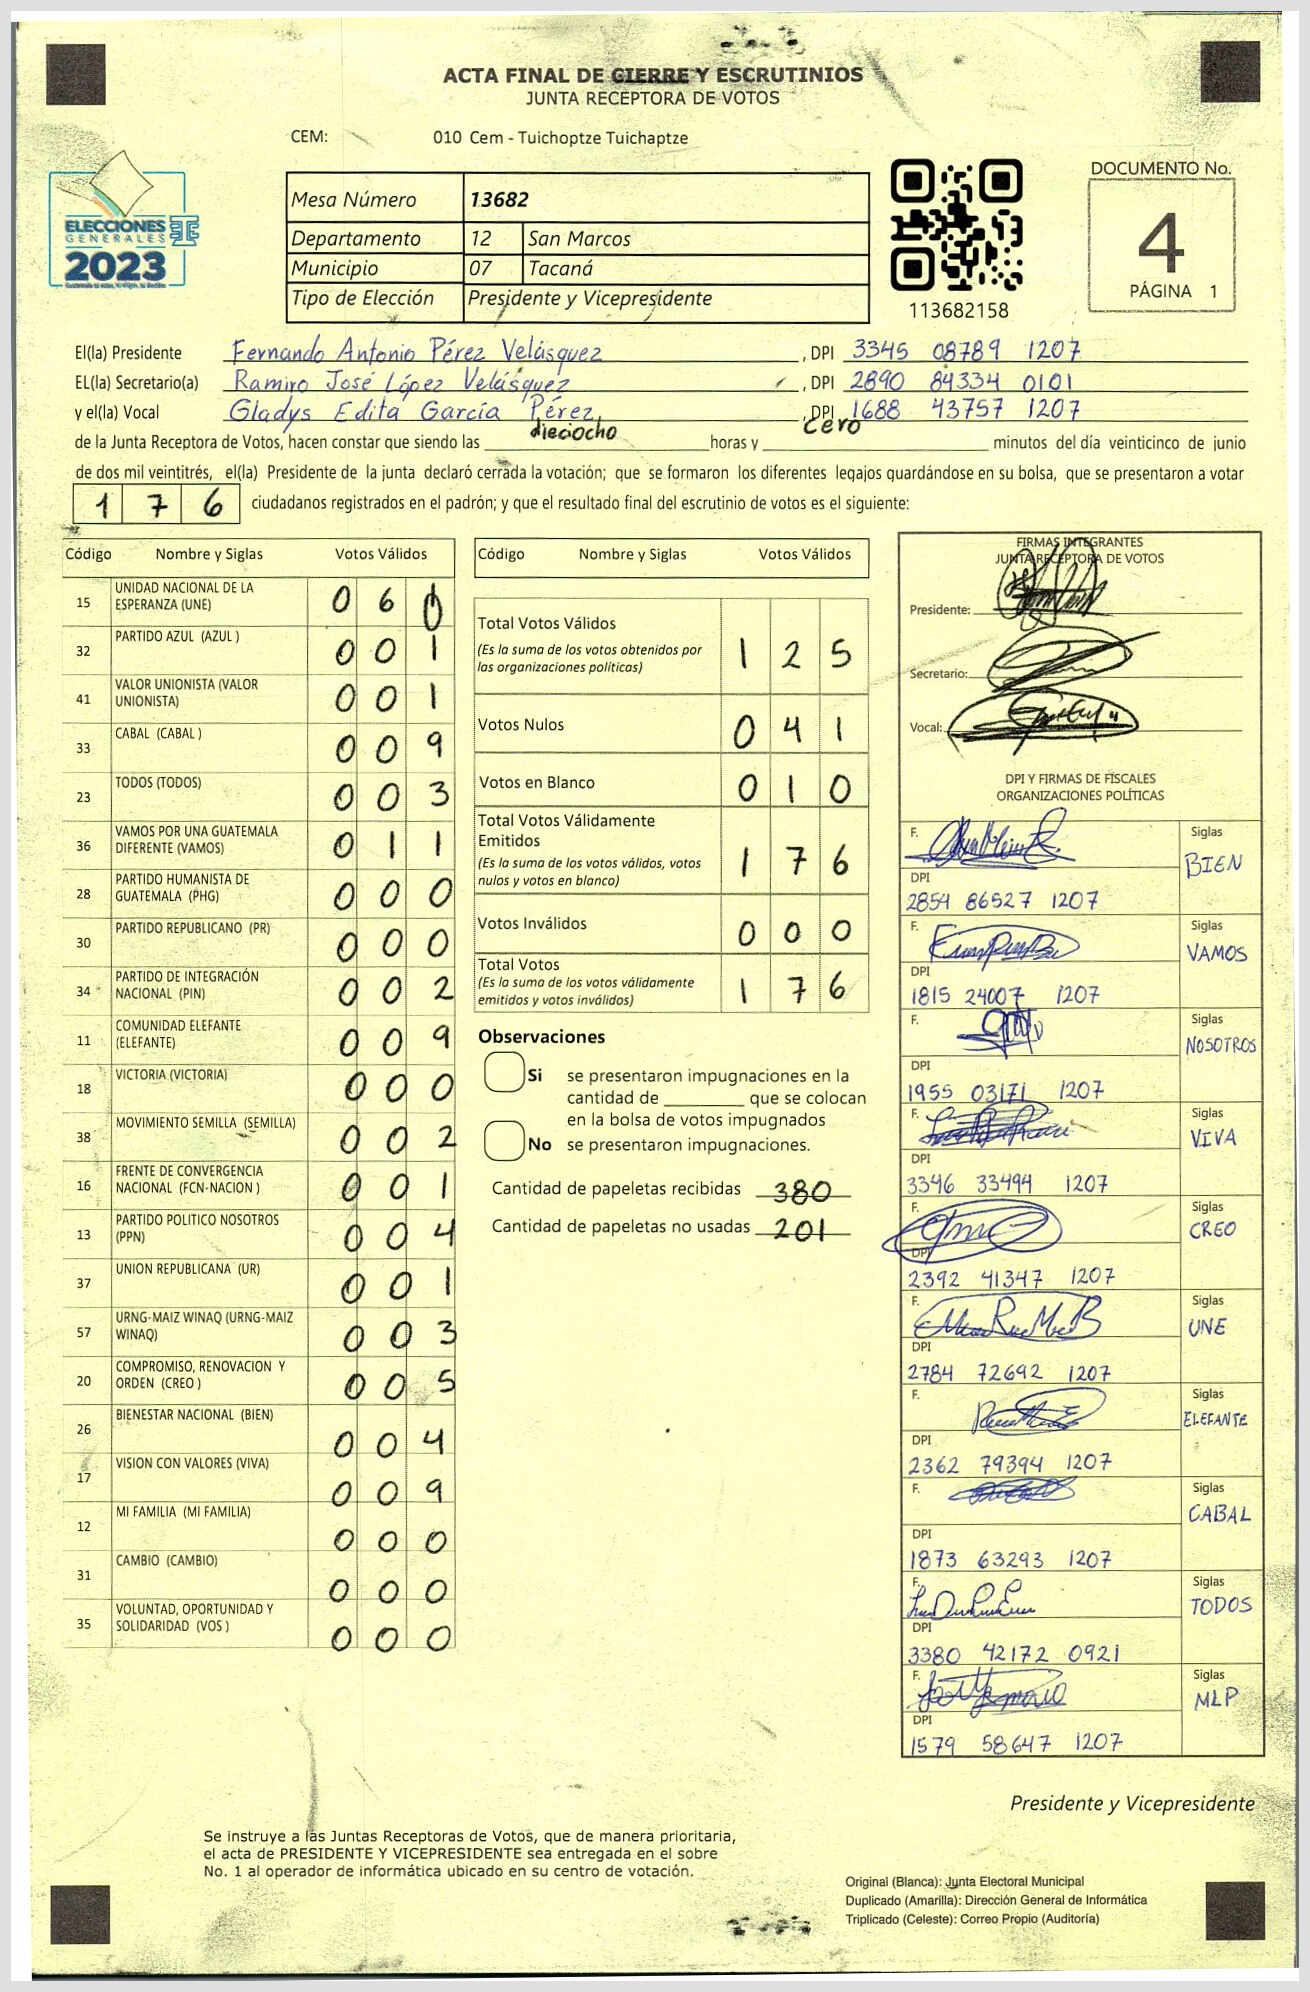 ACTA FINAL DE CIERRE Y ESCRUTINIOS
JUNTA RECEPTORA DE VOTOS
CEM: 010 Cem - Tuichoptze Tuichaptze
ELECCIONES
GENERALES
2023
Mesa Número 13682
Departamento 12 San Marcos
Municipio 07 Tacaná
Tipo de Elección Presidente y Vicepresidente
113682158
DOCUMENTO No.
4
PÁGINA 1
El(la) Presidente Fernando Antonio Pérez Velásquez , DPI 3345 08789 1207
EL(la) Secretario(a) Ramiro José López Velásquez , DPI 2890 84334 0101
y el(la) Vocal Gladys Edita García Pérez , DPI 1688 43757 1207
de la Junta Receptora de Votos, hacen constar que siendo las dieciocho horas y cero minutos del día veinticinco de junio
de dos mil veintitrés, el(la) Presidente de la junta declaró cerrada la votación; que se formaron los diferentes legajos guardándose en su bolsa, que se presentaron a votar
1 7 6 ciudadanos registrados en el padrón; y que el resultado final del escrutinio de votos es el siguiente:
Código Nombre y Siglas Votos Válidos
15 UNIDAD NACIONAL DE LA
ESPERANZA (UNE) 0 6
32 PARTIDO AZUL (AZUL ) 0 0 1
41 VALOR UNIONISTA (VALOR
UNIONISTA) 0 0 1
33 CABAL (CABAL ) 0 0 9
23 TODOS (TODOS) 0 0 3
36 VAMOS POR UNA GUATEMALA
DIFERENTE (VAMOS) 0 1 1
28 PARTIDO HUMANISTA DE
GUATEMALA (PHG) 0 0 0
30 PARTIDO REPUBLICANO (PR) 0 0 0
34 PARTIDO DE INTEGRACIÓN
NACIONAL (PIN) 0 0 2
11 COMUNIDAD ELEFANTE
(ELEFANTE) 0 0 9
18 VICTORIA (VICTORIA) 0 0 0
38 MOVIMIENTO SEMILLA (SEMILLA) 0 0 2
16 FRENTE DE CONVERGENCIA
NACIONAL (FCN-NACION ) 0 0 1
13 PARTIDO POLITICO NOSOTROS
(PPN) 0 0 4
37 UNION REPUBLICANA (UR) 0 0 1
57 URNG-MAIZ WINAQ (URNG-MAIZ
WINAQ) 0 0 3
20 COMPROMISO, RENOVACION Y
ORDEN (CREO ) 0 0 5
26 BIENESTAR NACIONAL (BIEN) 0 0 4
17 VISION CON VALORES (VIVA) 0 0 9
12 MI FAMILIA (MI FAMILIA) 0 0 0
31 CAMBIO (CAMBIO) 0 0 0
35 VOLUNTAD, OPORTUNIDAD Y
SOLIDARIDAD (VOS ) 0 0 0
Código Nombre y Siglas Votos Válidos
Total Votos Válidos
(Es la suma de los votos obtenidos por
las organizaciones políticas) 1 2 5
Votos Nulos 0 4 1
Votos en Blanco 0 1 0
Total Votos Válidamente
Emitidos
(Es la suma de los votos válidos, votos
nulos y votos en blanco) 1 7 6
Votos Inválidos 0 0 0
Total Votos
(Es la suma de los votos válidamente
emitidos y votos inválidos) 1 7 6
Observaciones
Si se presentaron impugnaciones en la
cantidad de ________ que se colocan
en la bolsa de votos impugnados
No se presentaron impugnaciones.
Cantidad de papeletas recibidas 380
Cantidad de papeletas no usadas 201
FIRMAS INTEGRANTES
JUNTA RECEPTORA DE VOTOS
Presidente:
Secretario:
Vocal:
DPI Y FIRMAS DE FISCALES
ORGANIZACIONES POLÍTICAS
F. Siglas
BIEN
DPI
2854 86527 1207
F. Siglas
VAMOS
DPI
1815 24007 1207
F. Siglas
NOSOTROS
DPI
1955 03171 1207
F. Siglas
VIVA
DPI
3346 33494 1207
F. Siglas
CREO
DPI
2392 41347 1207
F. Siglas
UNE
DPI
2784 72692 1207
F. Siglas
ELEFANTE
DPI
2362 79394 1207
F. Siglas
CABAL
DPI
1873 63293 1207
F. Siglas
TODOS
DPI
3380 42172 0921
F. Siglas
MLP
DPI
1579 58647 1207
Presidente y Vicepresidente
Se instruye a las Juntas Receptoras de Votos, que de manera prioritaria,
el acta de PRESIDENTE Y VICEPRESIDENTE sea entregada en el sobre
No. 1 al operador de informática ubicado en su centro de votación.
Original (Blanca): Junta Electoral Municipal
Duplicado (Amarilla): Dirección General de Informática
Triplicado (Celeste): Correo Propio (Auditoría)